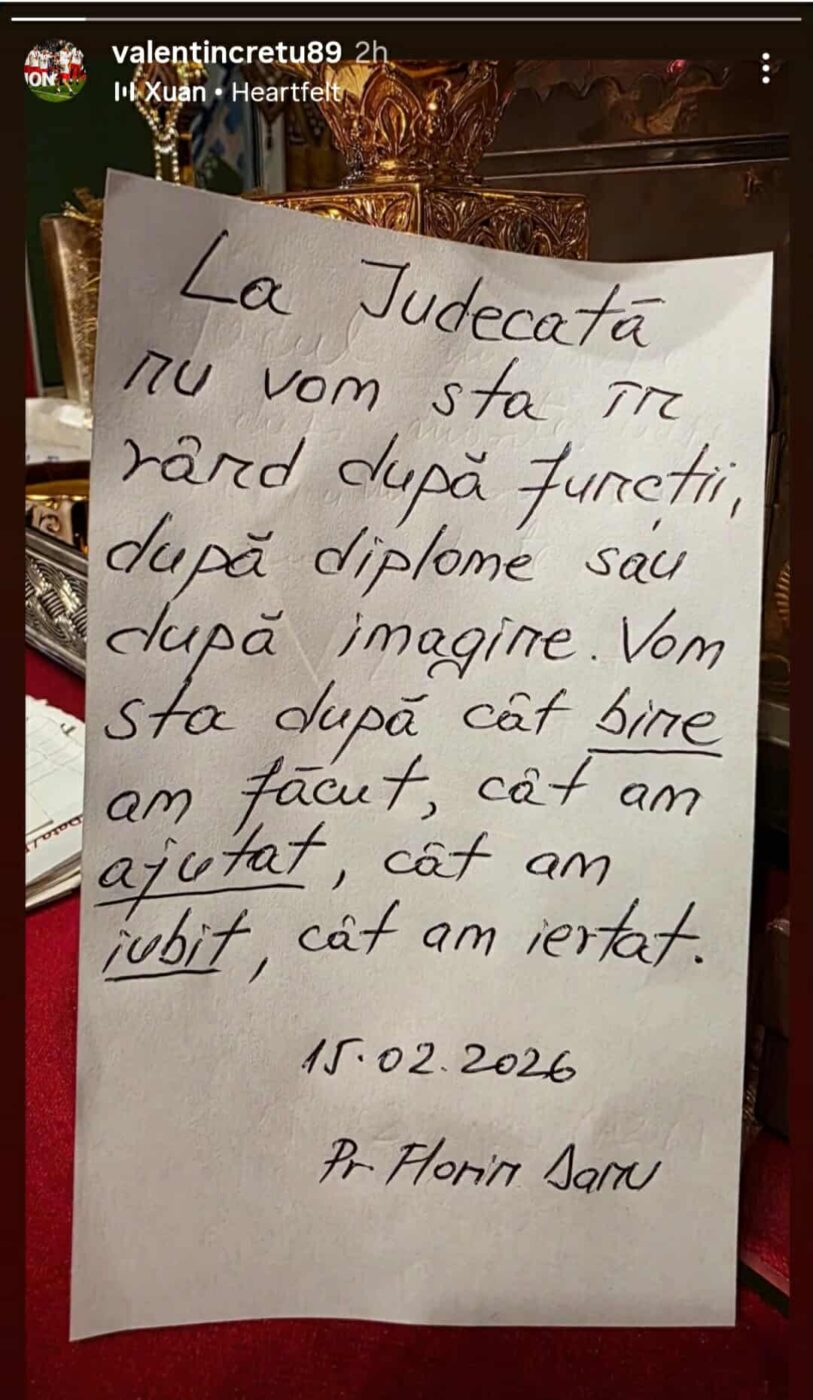 valentincretu89 2h
Xuan • Heartfelt
La Judecată
nu vom sta în
rând după funcții,
după diplome sau
după imagine. Vom
sta după cât bine
am făcut, cât am
ajutat, cât am
iubit, cât am iertat.
15.02.2026
Pr Florin Danu